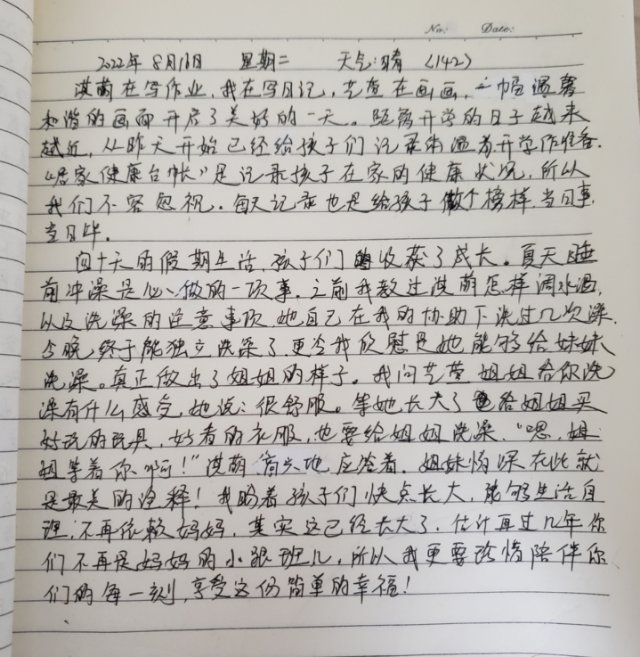 No: Date:
2022年8月16日 星期二 天气:晴 (142)
淇萌在写作业,我在写日记,艺萱在画画,一幅温馨
和谐的画面开启了美好的一天。距离开学的日子越来
越近,从昨天开始已经给孩子们记录体温为开学作准备.
"居家健康台帐"是记录孩子在家的健康状况,所以
我们不容忽视.每天记录也是给孩子做个榜样.当日事.
当日毕.
四十天的假期生活,孩子们收获了成长。夏天睡
前冲澡是必做的一项事.之前我教过淇萌怎样调水温,
以及洗澡的注意事项.她自己在我的协助下洗过几次澡.
今晚终于能独立洗澡了.更令我欣慰是她能够给妹妹
洗澡。真正做出了姐姐的样子。我问艺萱姐姐给你洗
澡有什么感受,她说:很舒服。等她长大了给姐姐买
好玩的玩具,好看的衣服,也要给姐姐洗澡."嗯,姐
姐等着你啊!"淇萌高兴地应答着.姐妹情深在此就
是最美的诠释!我盼着孩子们快点长大,能够生活自
理,不再依赖妈妈,其实这已经长大了.估计再过几年你
们不再是妈妈的小跟班儿,所以我更要珍惜陪伴你
们的每一刻,享受这份简单的幸福!